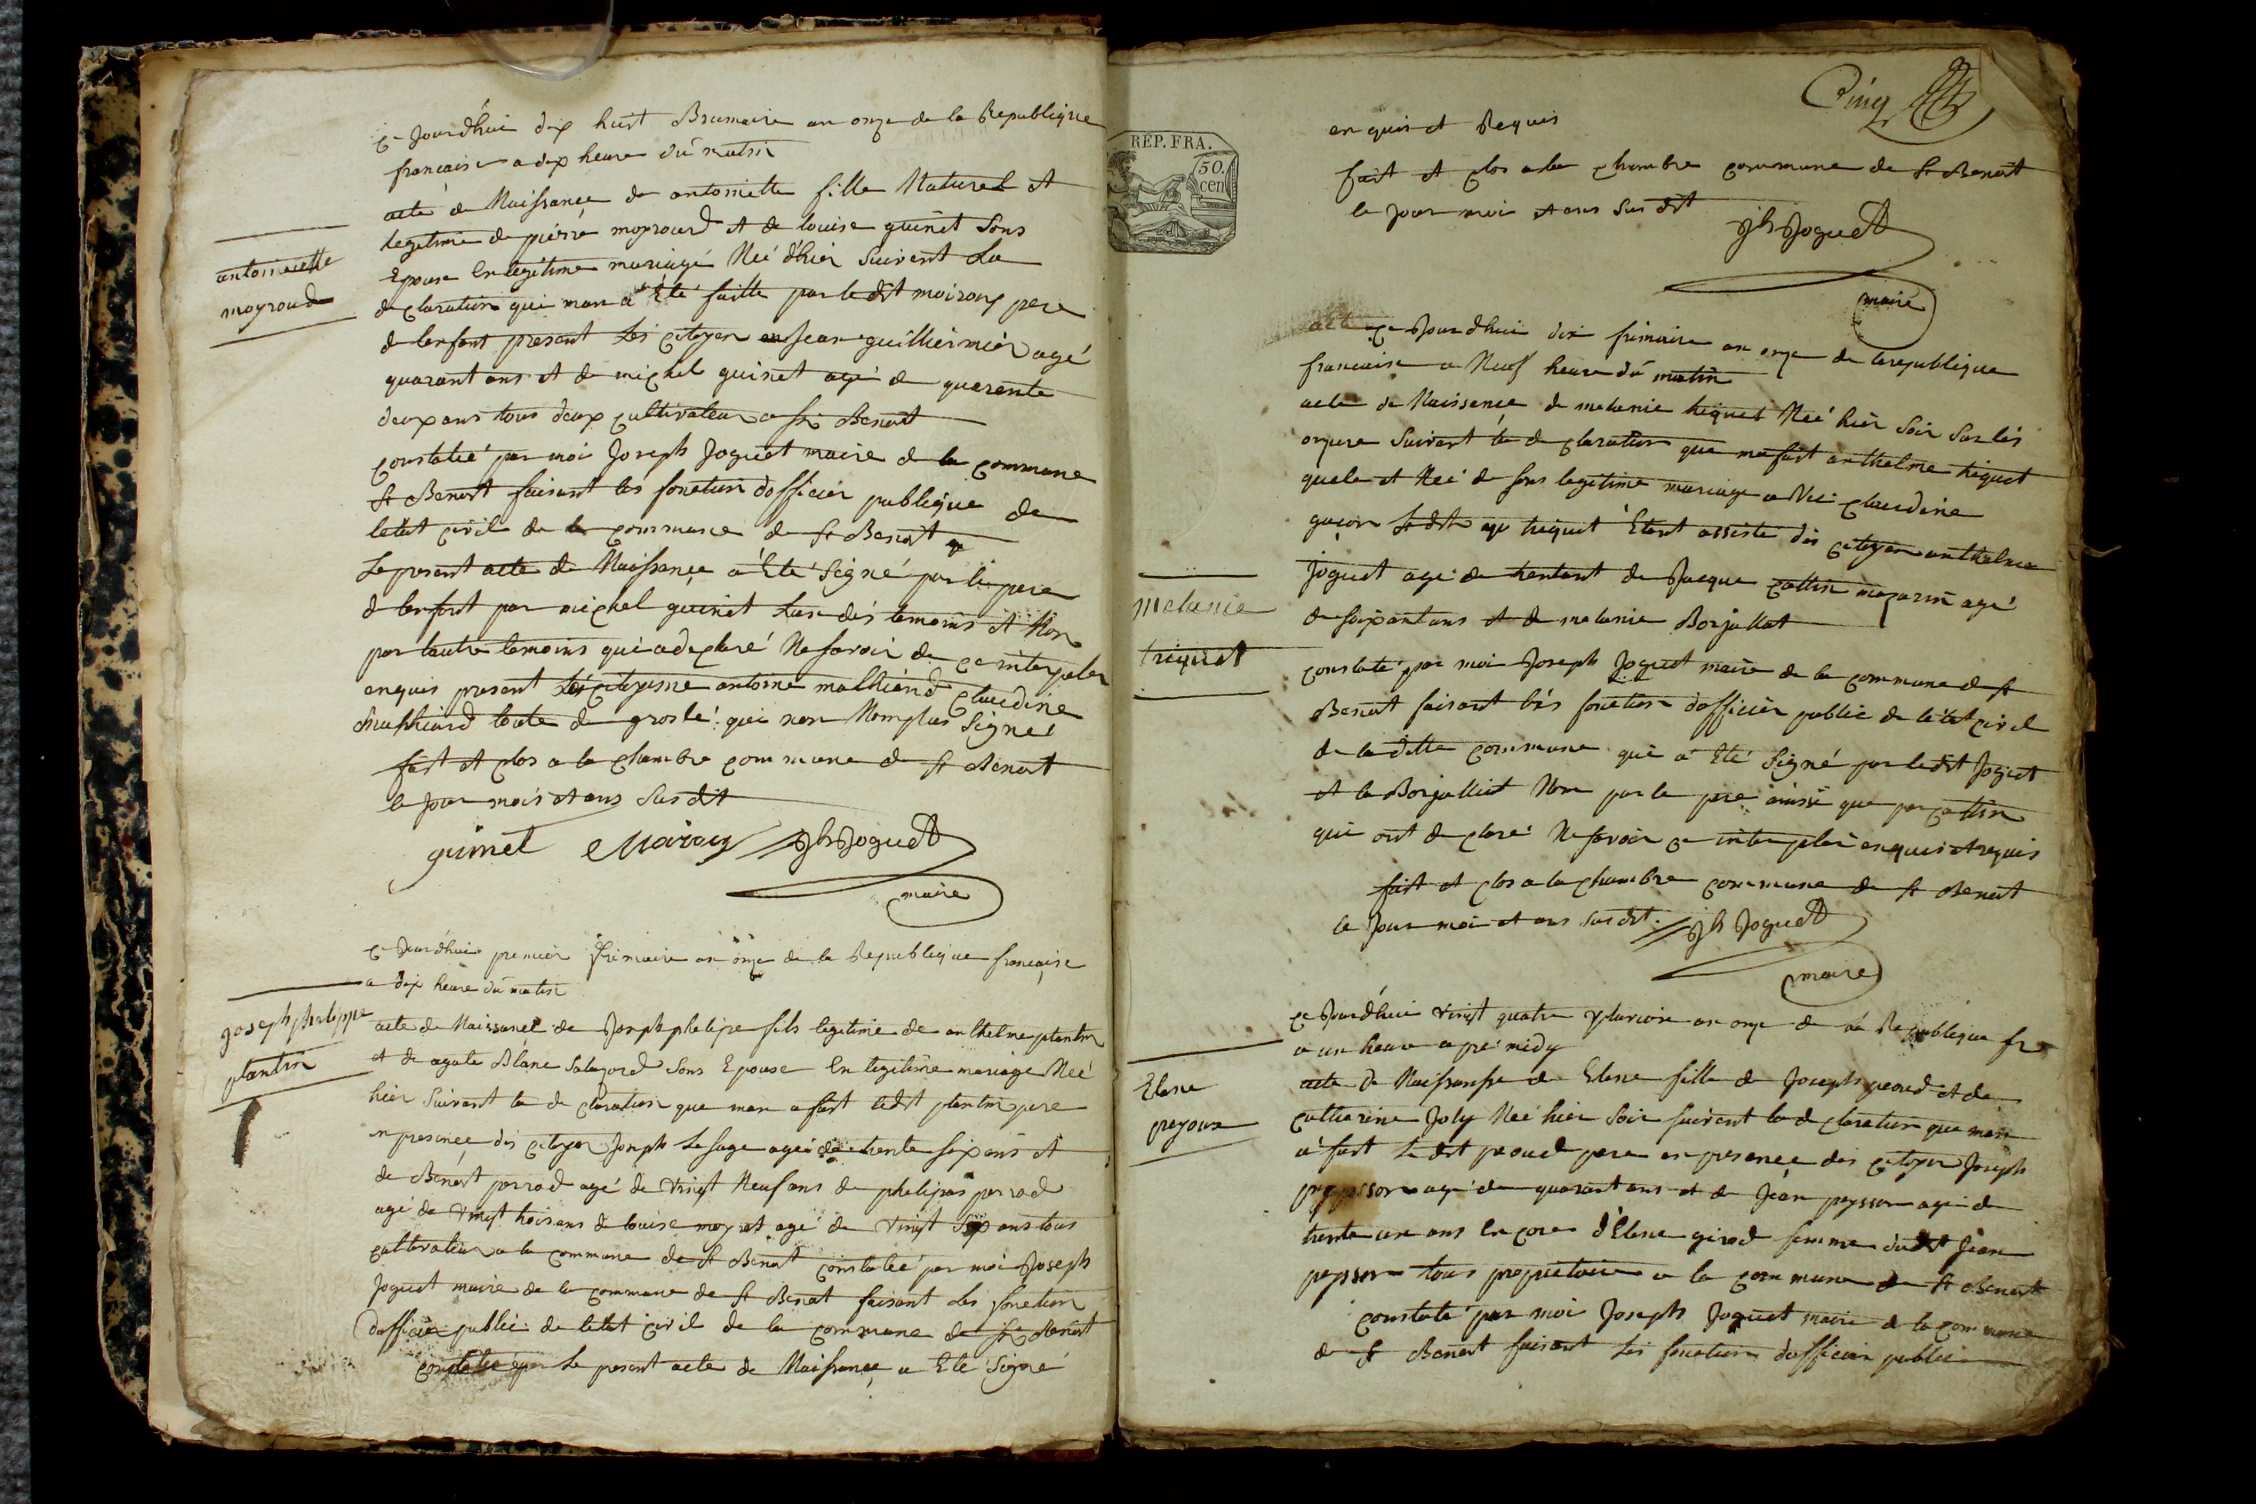 ce Jourdhui dix huit Brumaire an onze de la Republique
francaise a dix heure du matin
acte de Naissance de antoinette fille Naturel et
legitime de pierre moyroud et de louise guinet sons
Epouse En legitime mariage Neé d'hier suivent La
declaration qui man a Eté faitte par le dit moiroux pere
de lenfant present Les citoyen Jean guilliermier agé
quarant ans et de michel guinet agé de quarente
deux ans tous deux cultivateur a St Benoit
constateé par moi Joseph Joguet maire de la commune
St Benoit faisant les fonction dofficier publique de
letat civil de la commune de St Benoit
Le present acte de Naissance a Eté Signé par le pere
de lenfant par michel guinet Lun des temoins et Non
par lautre temoins qui a declaré Ne savoir de ce interpeler
enquis present Les citoyene antoine mathiérd claudine
mathiard toute de groslé qui non Nomplus Signer
fait et clos a la chambre commune de St Benoit
le jour mois et ans Susdit
guinet Moiroux Jh Joguet
maire
antoineitte
moyroud
ce Jourdhui premier frimaire an onze de la Republique francaise
a dix heure du matin
Joseph philippe
plantin
acte de Naissance de Joseph phelipe fils legitime de anthelme plantin
et de agate Blanc Salagord Sons Epouse En legitime mariage Neé
hier suivent la declaration que man a fait ledit plantin pere
en presence des citoyen Joseph Lesage ageé de trente six ans et
de Benoit perrod agé de vingt Neuf ans de phelipas perrod
agé de vingt trois ans de louise moyret agé de vingt six ans tous
cultivateur a la commune de St Benoit constateé par moi Joseph
Joguet maire de la commune de St Benoit faisant Les fonction
dofficier public de letat civil de la commune de St Benoit
constatée par Le present acte de Naissance a Eté Signé
Cinq
REP. FRA.
50.
cen
enquis et Requis
fait et clos a la chambre commune de St Benoit
le jour moi et ans Sus dit
Jh Joguet
maire
acte ce Jourdhui dix frimaire an onze de la republique
francaise a Neuf heure du matin
acte de Naissance de melanie triquet Neé hier soir sur les
onzure suivant la declaration que ma fait anthelme triquet
quele et Neé de sons legitime mariage avec claudine
guçon le dit triquet Etant assisté des citoyen anthelme
Joguet agé de trentant de Jacque cattin mazarin agé
de soixant ans et de melanie Borjallat
constaté par moi Joseph Joguet maire de la commune de St
Benoit faisant les fonction dofficier public de letat civil
de la ditte commune qui a Eté Signé par ledit Joguet
et la Borjalliet Non par le pere ainssi que par cattin
qui ont declaré Ne savoir ce interpeler enquis et requis
fait et clos a la chambre commune de St Benoit
le Jour moi et ans sus dit. Jh Joguet
maire
melanie
triquet
ce Jourdhui vingt quatre pluviose an onze de la Republique fr
a un heure apré midy
Elene
peyoux
acte de Naissansse de Elene fille de Joseph peoud et de
catterine Joly Neé hier soir suivent la declaration que man
a fait Le dit peoud pere en presence des citoyen Joseph
peysson agé de quarant ans et de Jean peysson agé de
trente un ans En core d'Elene girod femme dudit Jean
peysson tous proprietaire a la commune de St Benoit
constaté par moi Joseph Joguet maire de la commune
de St Benoit faisant Les fonction dofficier public